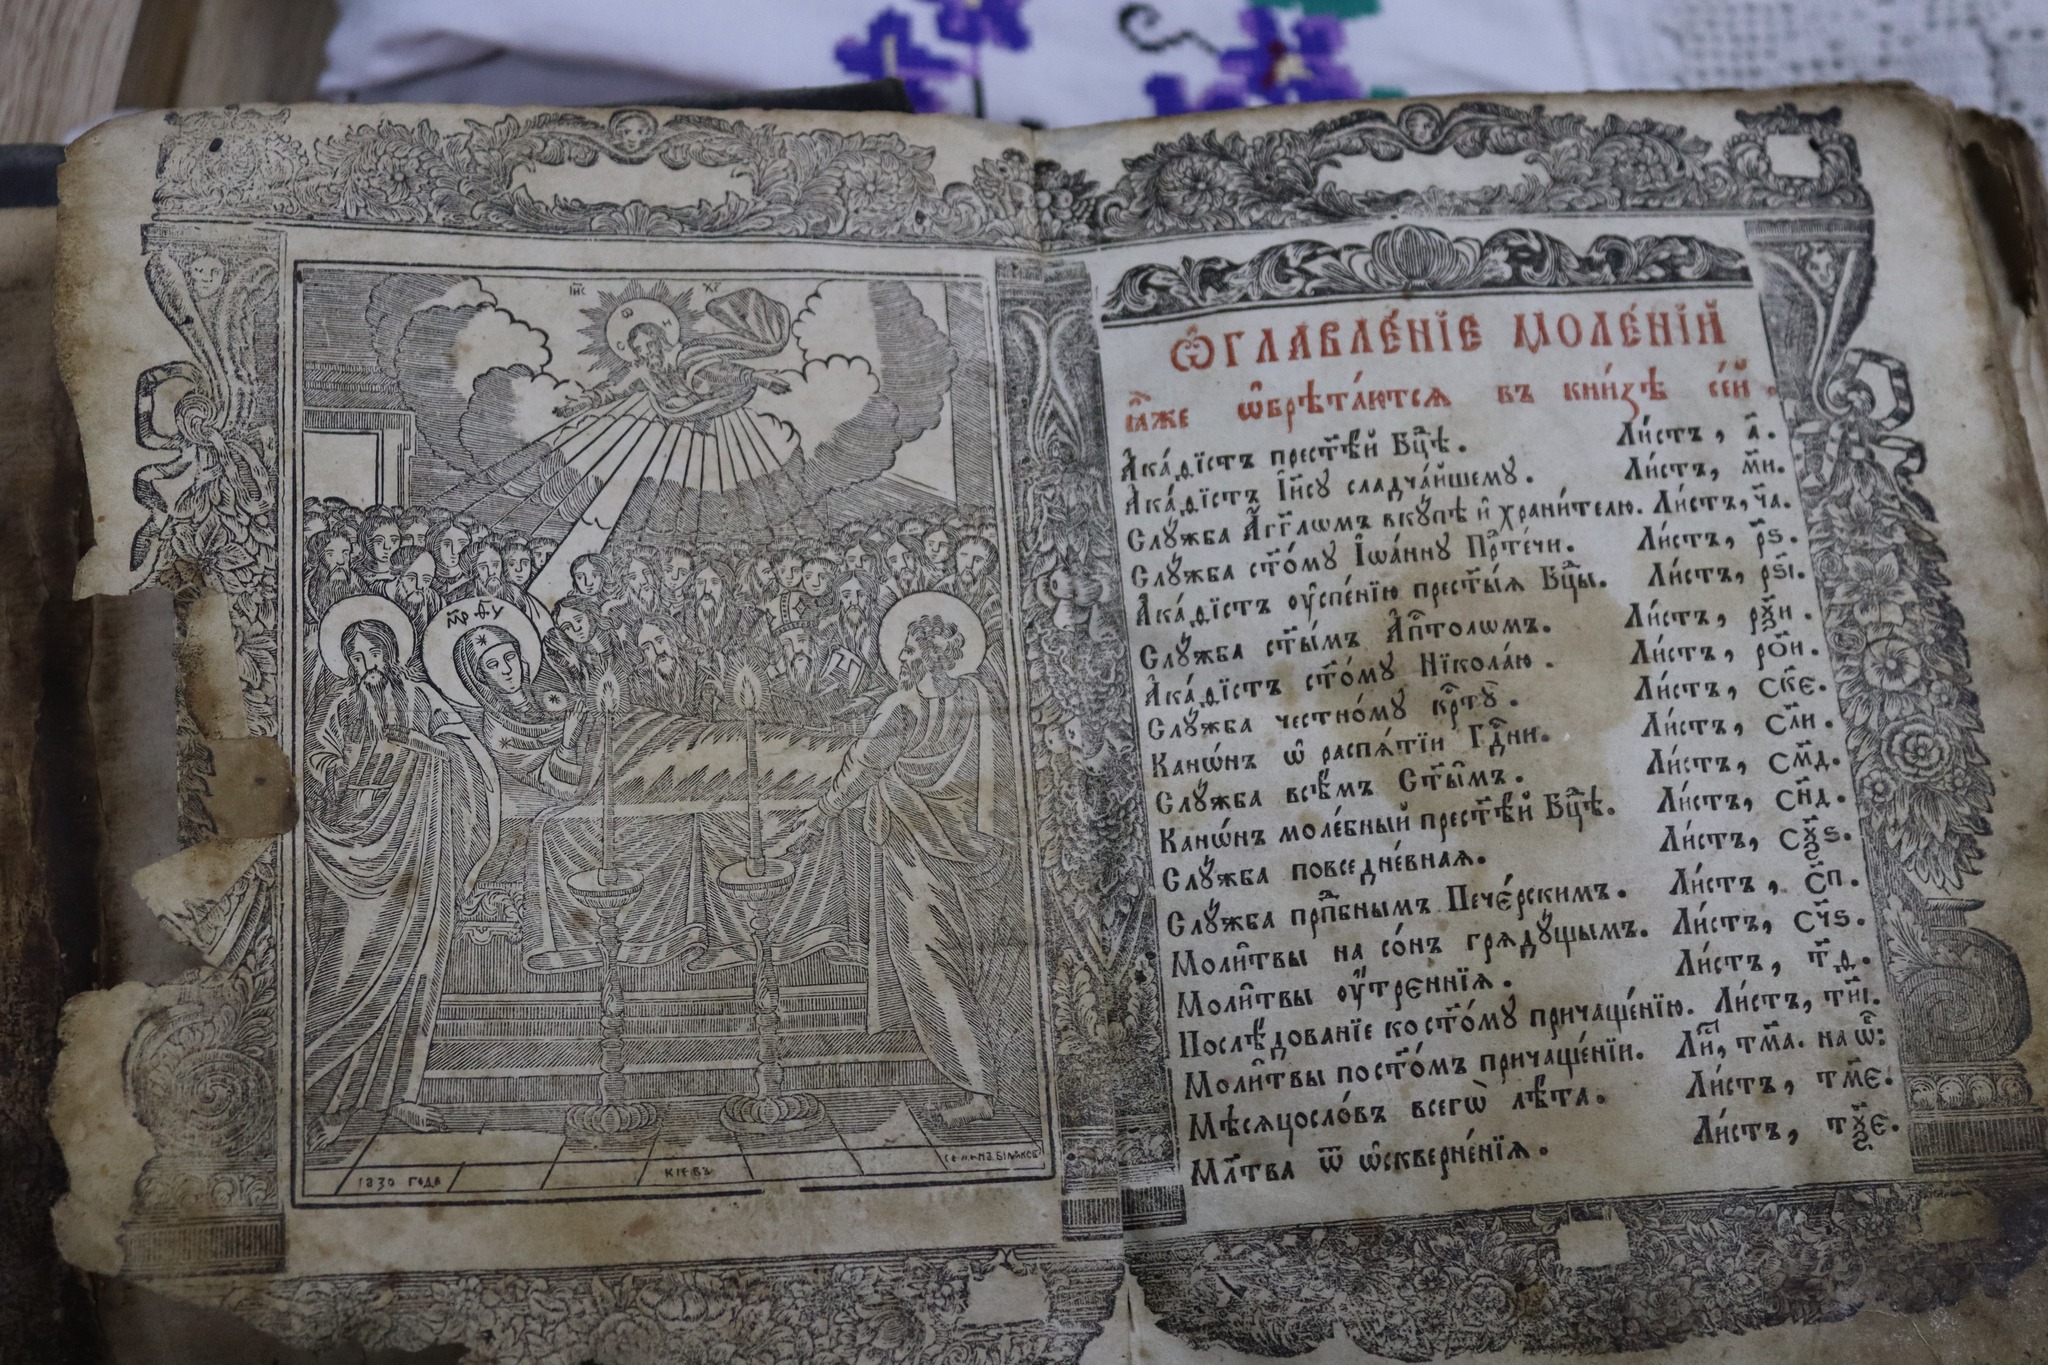 І҆и҃с Хр҃
Ѡ Н
МР҃ Ѳ҃У
1830 ГОДА КІЕВЪ
Ѻ҆ГЛАВЛЕ́НІЕ МОЛЕ́НІЙ
ꙗ҆̀же ѡ҆брѣта́ютсѧ въ кни́зѣ се́й.
А҆ка́ѳїстъ прест҃ѣ́й Бц҃ѣ. Ли́стъ, а҃.
А҆ка́ѳїстъ І҆и҃су сладча́йшему. Ли́стъ, м҃и.
Слꙋ́жба А҆́гг҃лѡмъ вкꙋ́пѣ и҆ храни́телю. Ли́стъ, ч҃а.
Слꙋ́жба ст҃о́мꙋ І҆ѡа́ннꙋ Прⷣте́чи. Ли́стъ, р҃ѕ.
А҆ка́ѳїстъ ѹ҆спе́нїю прест҃ы́ѧ Бц҃ы. Ли́стъ, рѕ҃і.
Слꙋ́жба ст҃ы́мъ А҆пⷭ҇толѡмъ. Ли́стъ, рѯ҃и.
А҆ка́ѳїстъ ст҃о́мꙋ Нїкола́ю. Ли́стъ, ро҃и.
Слꙋ́жба честно́мꙋ крⷭ҇тꙋ̀. Ли́стъ, ск҃є.
Канѡ́нъ ѡ҆ распѧ́тїи Гдⷭ҇ни. Ли́стъ, сл҃и.
Слꙋ́жба всѣ̑мъ Ст҃ы̑мъ. Ли́стъ, см҃д.
Канѡ́нъ моле́бный прест҃ѣ́й Бц҃ѣ. Ли́стъ, сн҃д.
Слꙋ́жба повседне́вная. Ли́стъ, сѯ҃ѕ.
Слꙋ́жба прпⷣбнымъ Пече́рскимъ. Ли́стъ, с҃п.
Моли̑твы на со́нъ грѧдꙋ́щымъ. Ли́стъ, сч҃ѕ.
Моли̑твы ѹ҆́треннїѧ. Ли́стъ, т҃д.
Послѣ́дованїе ко ст҃о́мꙋ причаще́нїю. Ли́стъ, тн҃і.
Моли̑твы по ст҃о́мъ причаще́нїи. Лиⷭ҇, тм҃а. на ѡ҆б:
Мѣсѧцосло́въ всегѡ̀ лѣ́та. Ли́стъ, тм҃є.
Мл҃тва ѿ ѡ҆скверне́нїѧ. Ли́стъ, тѯ҃є.